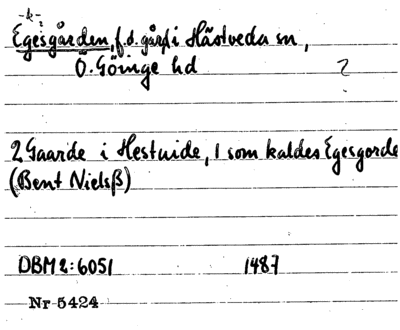 -k-
Egesgården, f.d. gård i Hästveda sn,
Ö. Göinge hd ?
2 Gaarde i Hestuide, 1 som kaldes Egesgorde
(Bent Nielsß)
DBM 2:6051 1487
Nr 5424